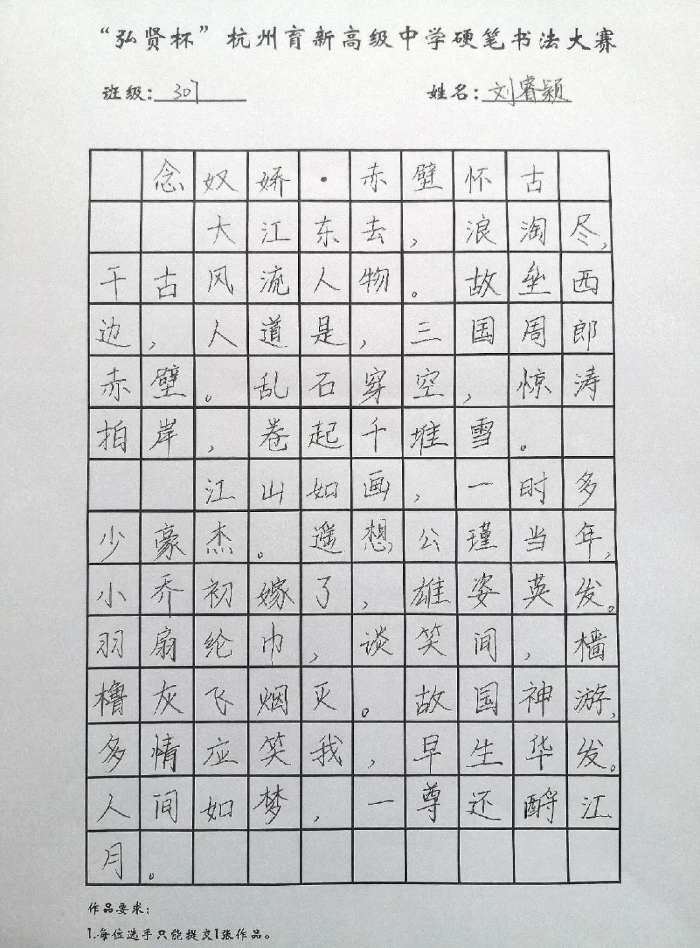 “弘贤杯”杭州育新高级中学硬笔书法大赛
班级：307 姓名：刘睿颖
念奴娇·赤壁怀古
大江东去，浪淘尽，
千古风流人物。故垒西
边，人道是，三国周郎
赤壁。乱石穿空，惊涛
拍岸，卷起千堆雪。
江山如画，一时多
少豪杰。遥想，公瑾当年，
小乔初嫁了，雄姿英发。
羽扇纶巾，谈笑间，樯
橹灰飞烟灭。故国神游，
多情应笑我，早生华发。
人间如梦，一尊还酹江
月。
作品要求：
1.每位选手只能提交1张作品。